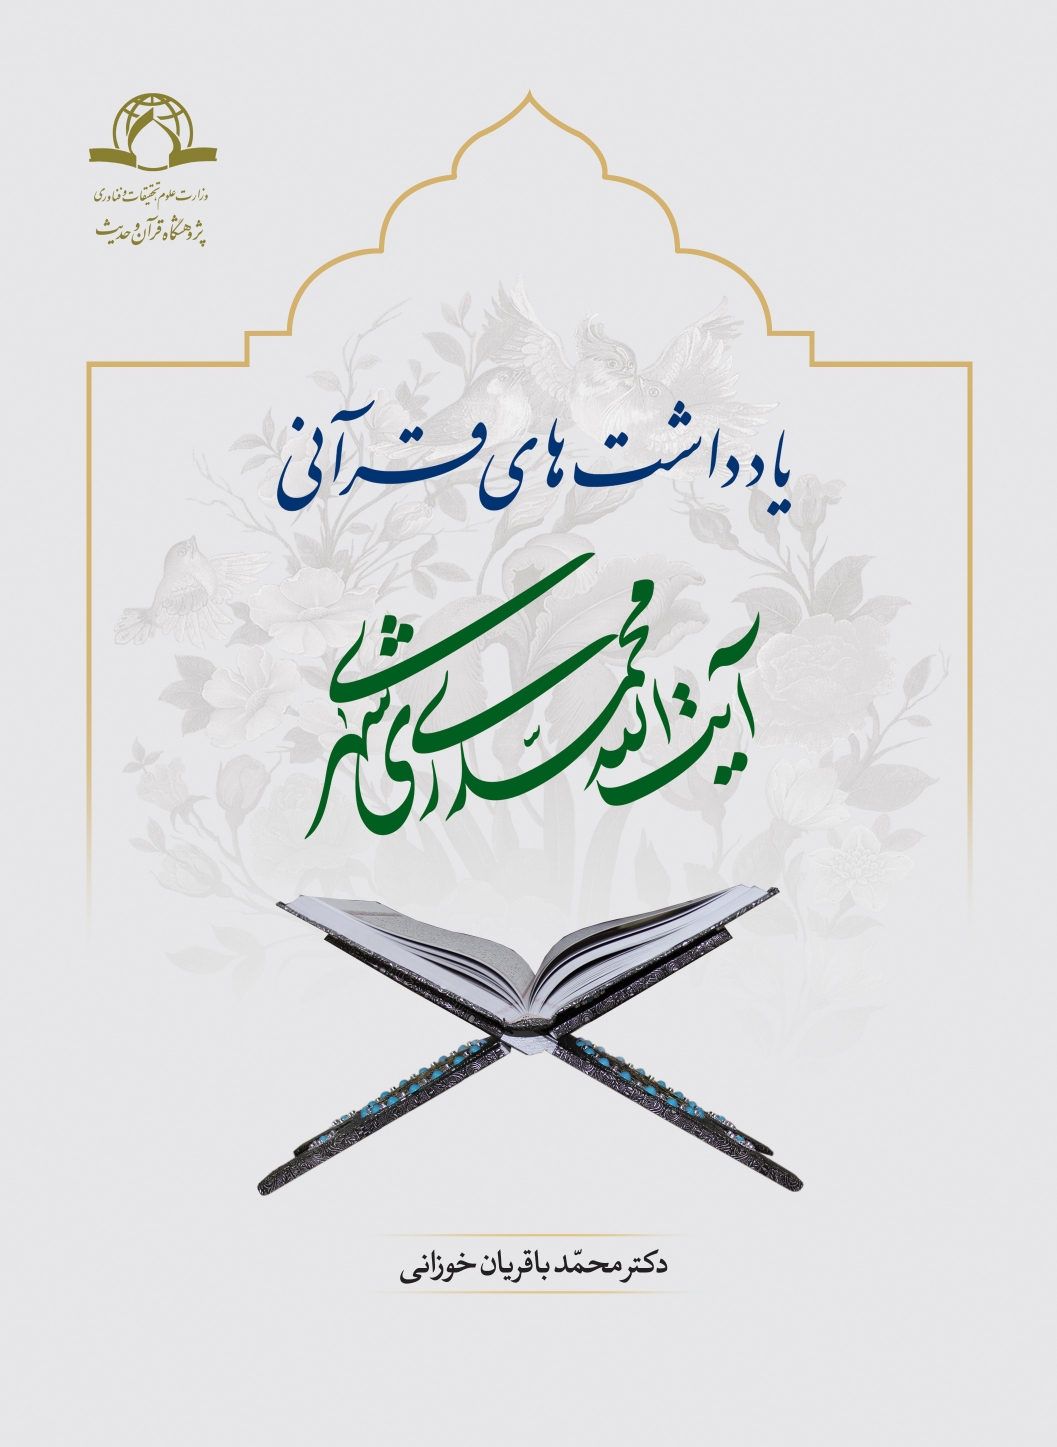 وزارت علوم، تحقیقات و فناوری
پژوهشگاه قرآن و حدیث
یادداشت های قرآنی
آیت الله محمدی ری شهری
دکتر محمّد باقریان خوزانی